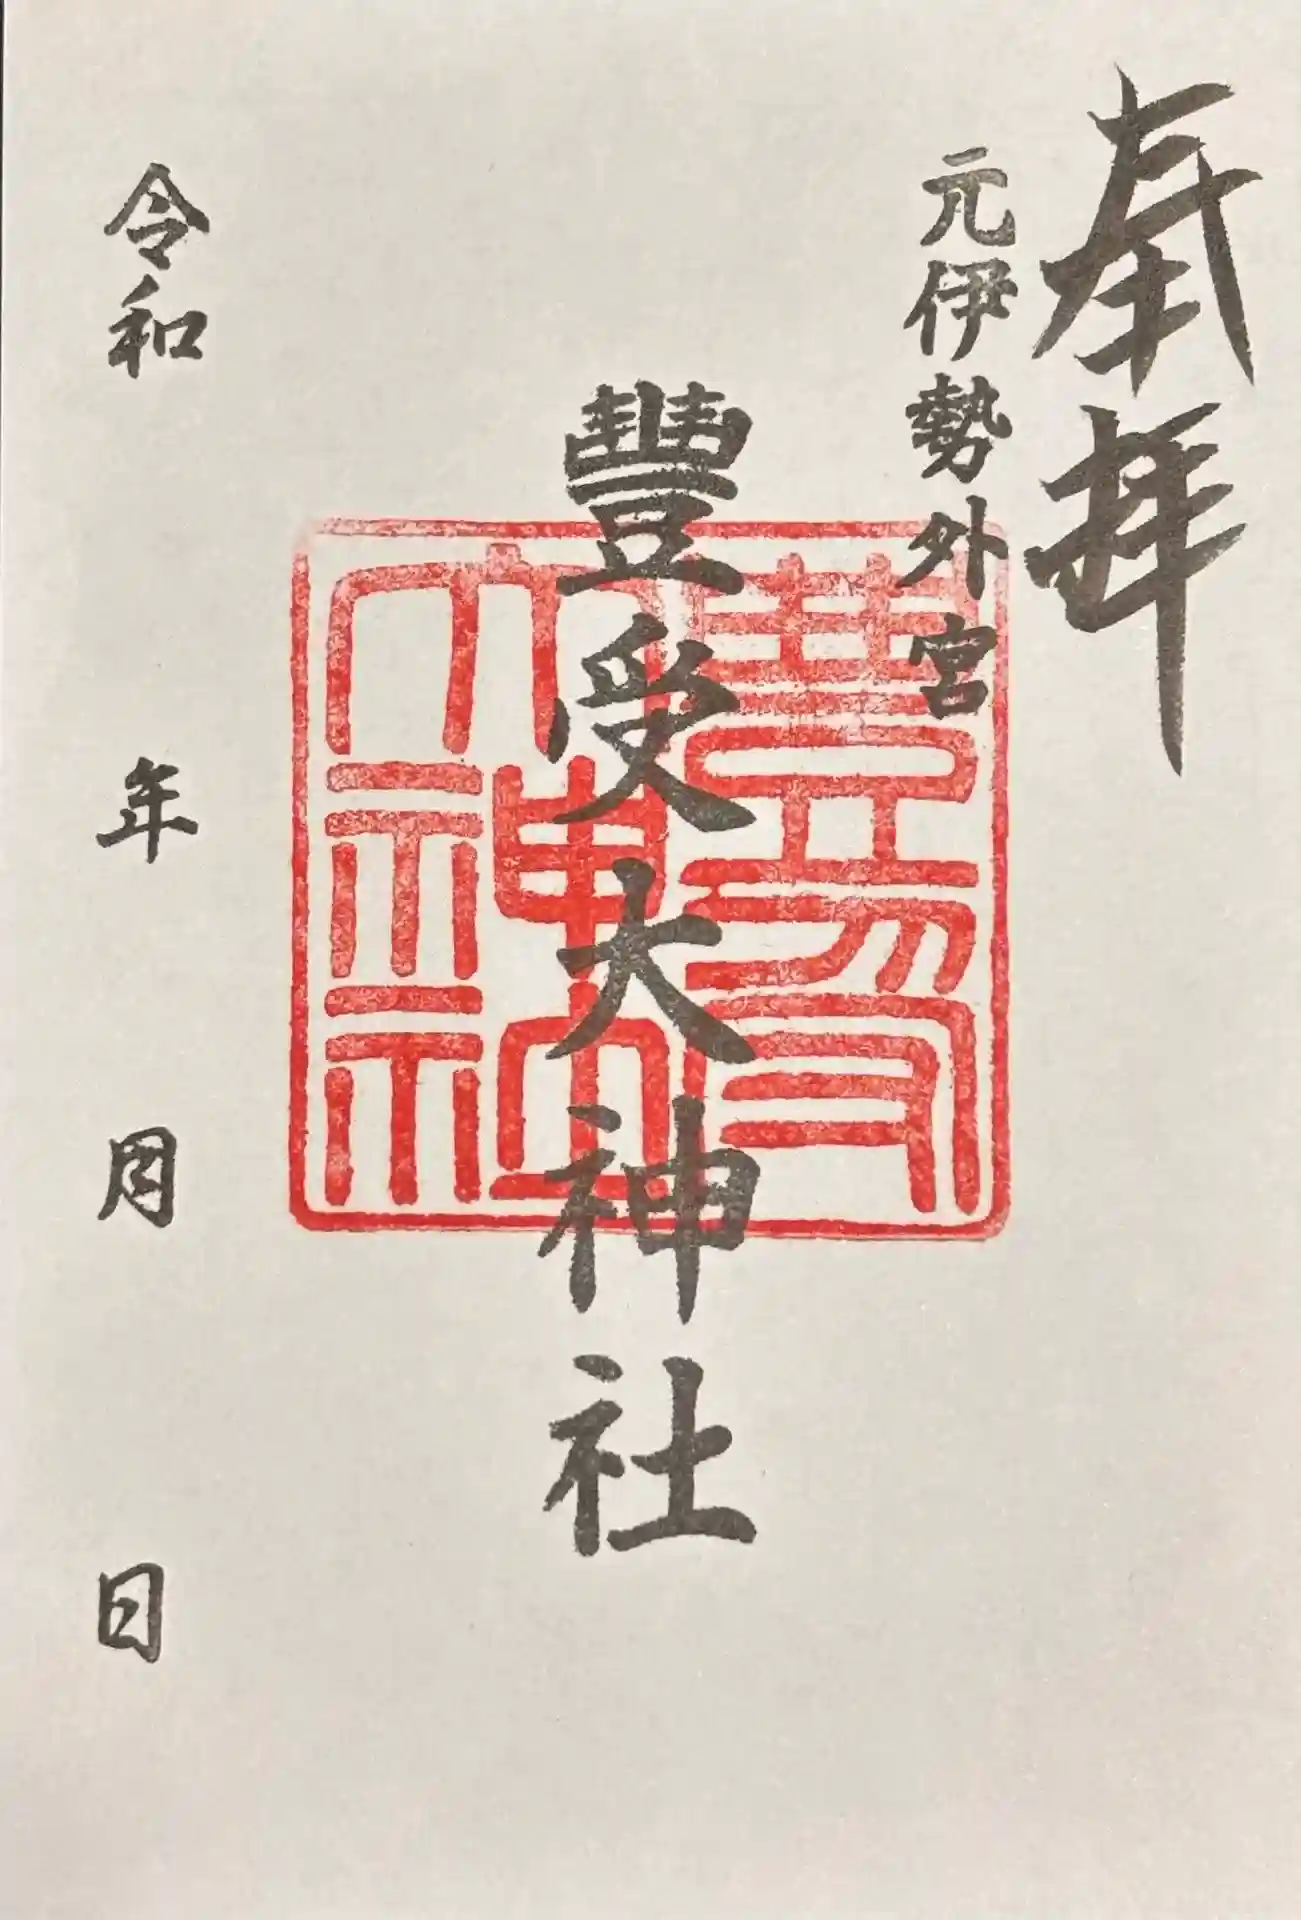 奉拝
元伊勢外宮
豐受大神社
豐受大神社
令和 年 月 日